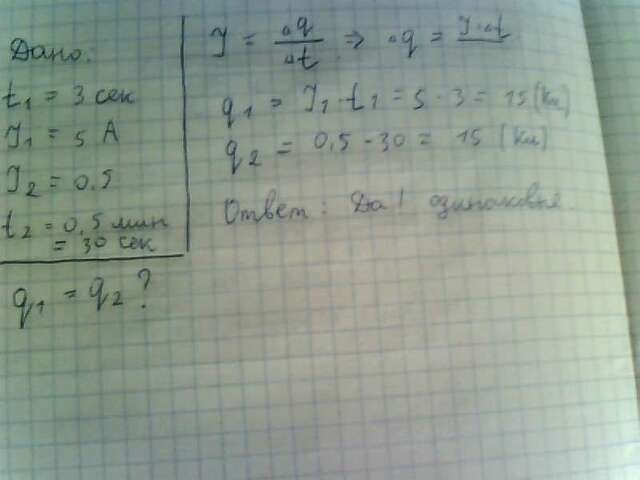 Дано.
t₁ = 3 сек
I₁ = 5 А
I₂ = 0.5
t₂ = 0,5 мин
= 30 сек
q₁ = q₂ ?
I = Δq/Δt ⇒ Δq = I·Δt
q₁ = I₁·t₁ = 5·3 = 15 (Кл)
q₂ = 0,5·30 = 15 (Кл)
Ответ: Да! одинаковые.